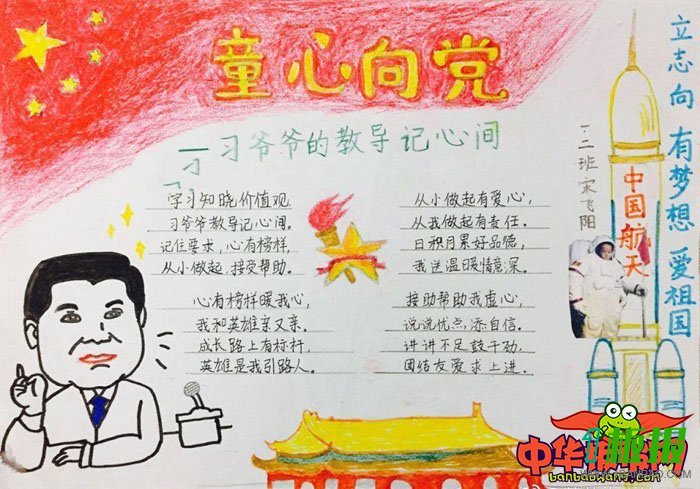 童心向党
习爷爷的教导记心间
学习知晓价值观
习爷爷教导记心间。
记住要求,心有榜样,
从小做起,接受帮助。
心有榜样暖我心,
我和英雄亲又亲。
成长路上有标杆,
英雄是我引路人。
从小做起有爱心,
从我做起有责任。
日积月累好品德,
我送温暖情意深。
接助帮助我虚心,
说说优点添自信。
讲讲不足鼓干劲,
团结友爱求上进。
一.二班宋飞阳
中国航天
立志向 有梦想 爱祖国
中华板报网
banbaowang.com